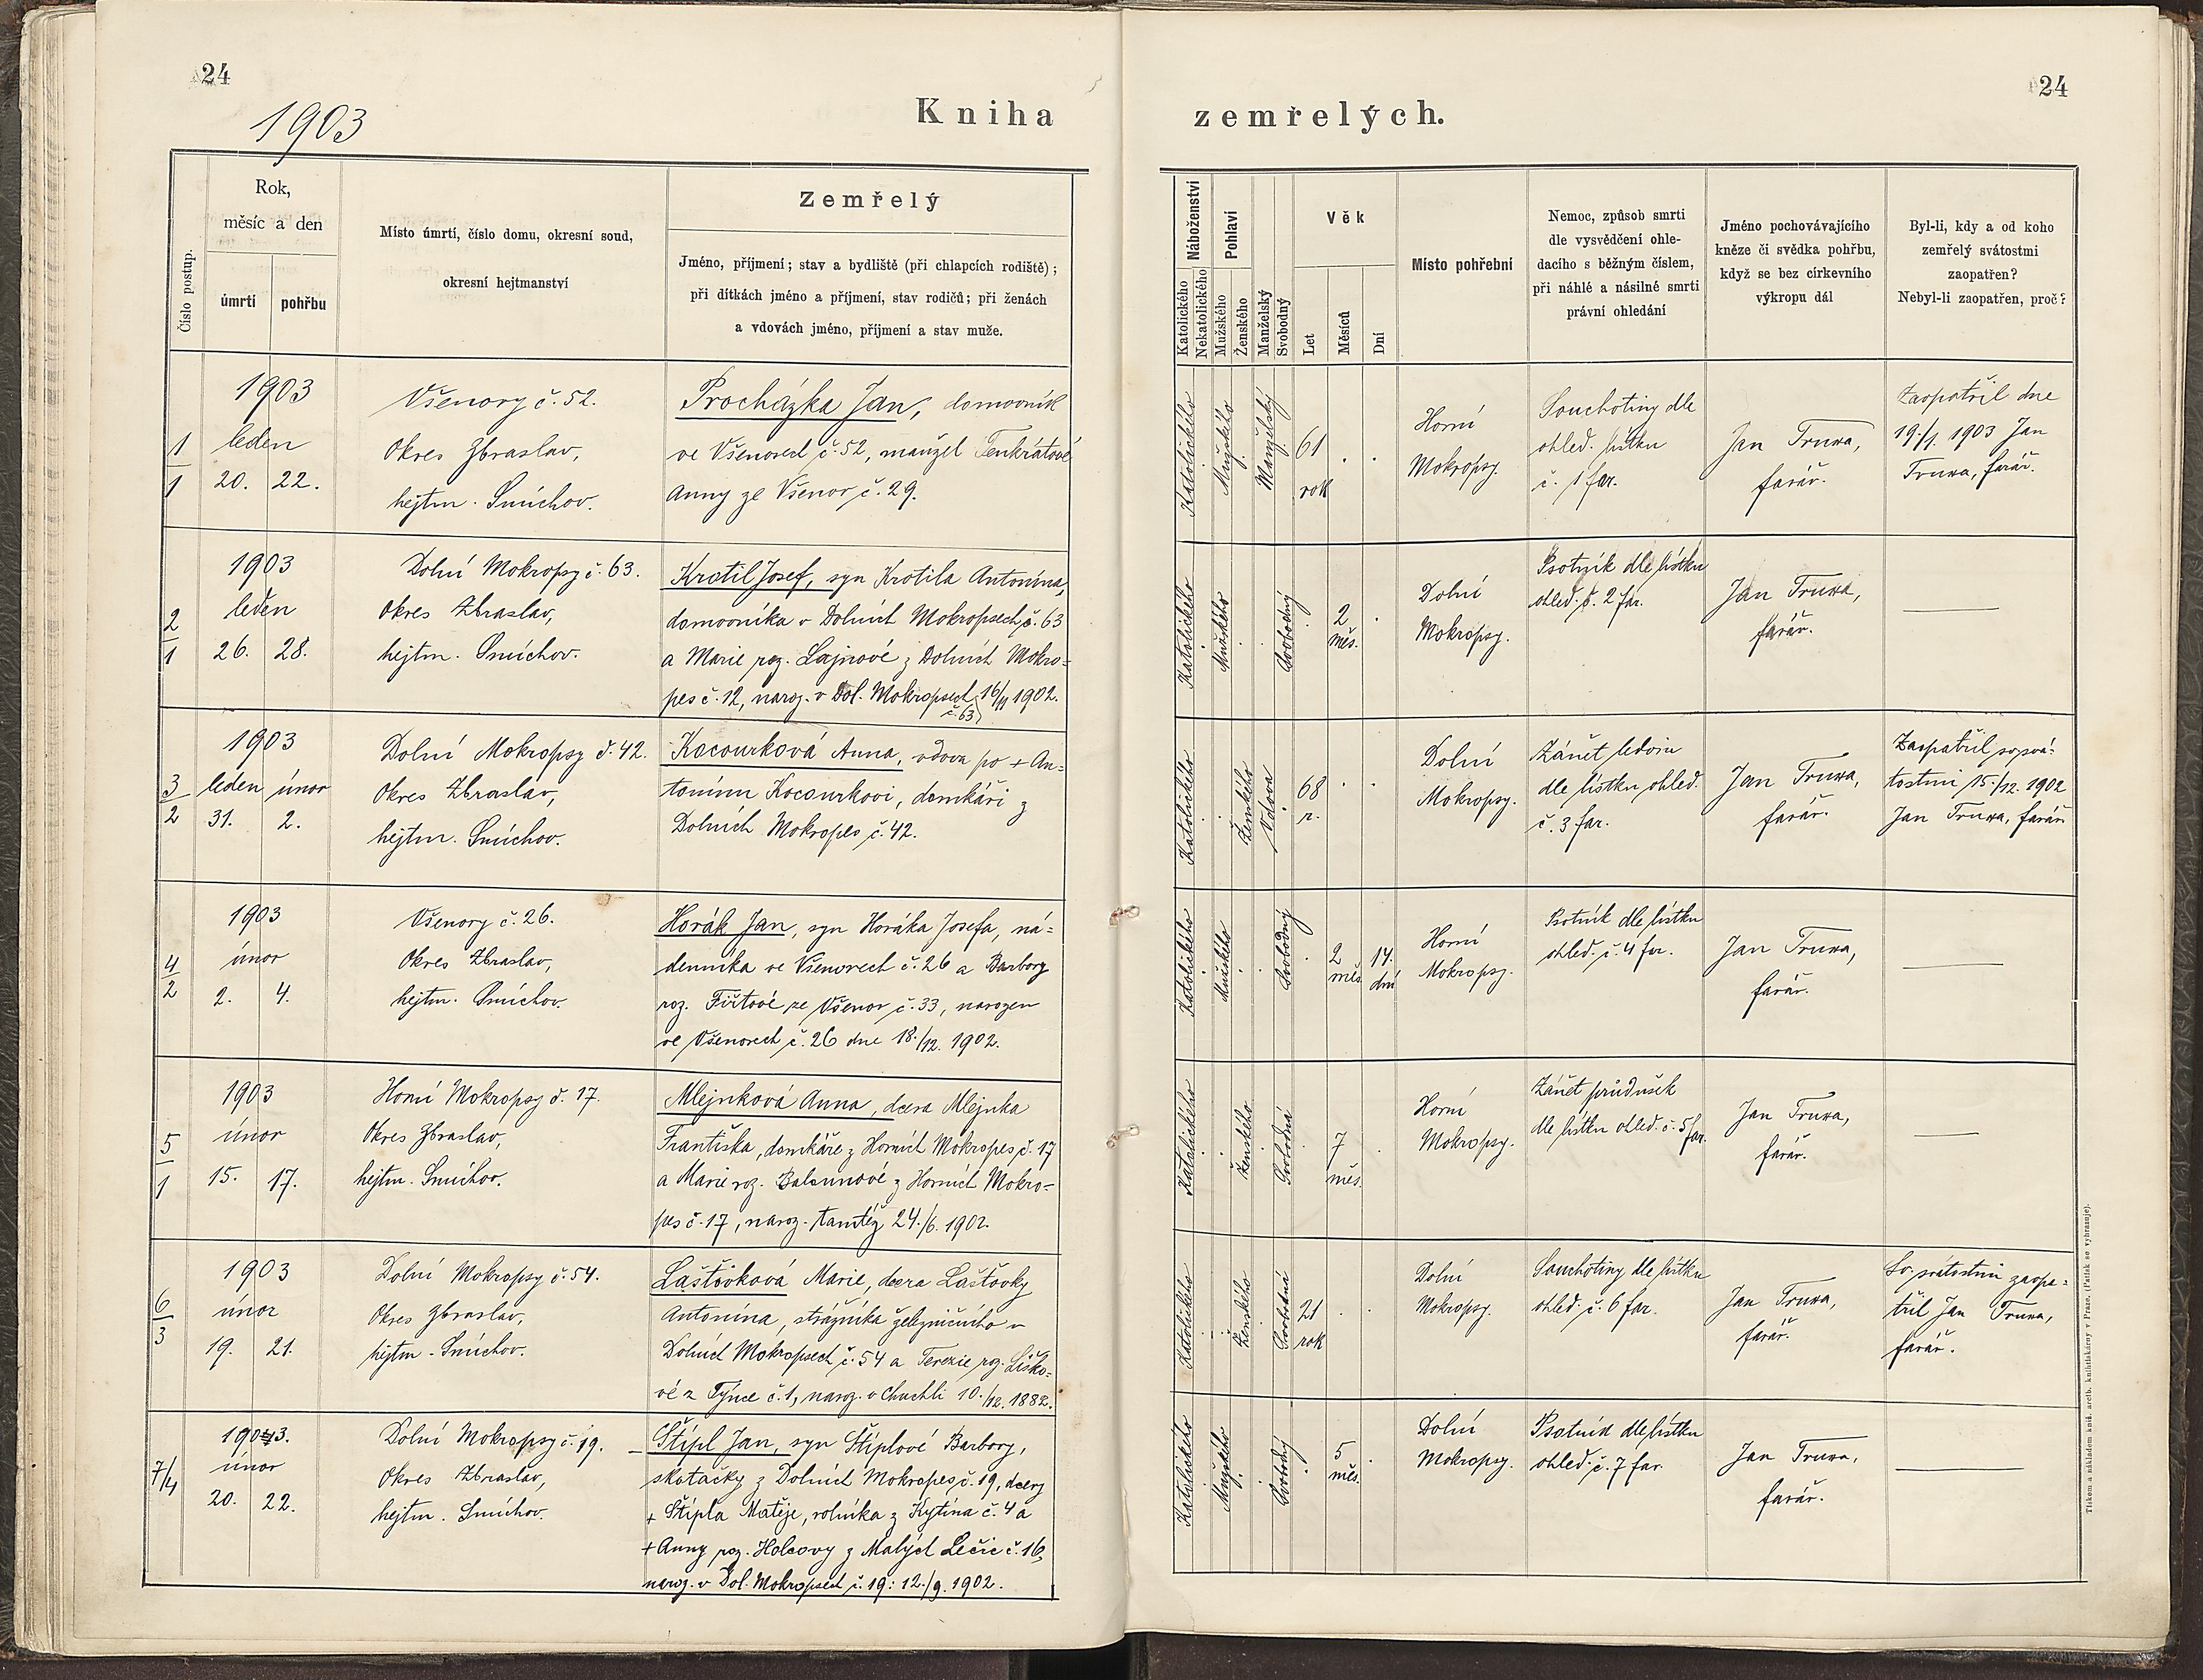 24
1903
Kniha
Číslo postup.
Rok,
měsíc a den
úmrtí
pohřbu
Místo úmrtí, číslo domu, okresní soud,
okresní hejtmanství
Zemřelý
Jméno, příjmení; stav a bydliště (při chlapcích rodiště);
při dítkách jméno a příjmení, stav rodičů; při ženách
a vdovách jméno, příjmení a stav muže.
1
1
1903
leden
20. 22.
Všenory č. 52.
Okres Zbraslav,
hejtm. Smíchov.
Procházka Jan, domovník
ve Všenorech č. 52, manžel Tenkrátové
Anny ze Všenor č. 29.
2
1
1903
leden
26. 28.
Dolní Mokropsy č. 63.
Okres Zbraslav,
hejtm. Smíchov.
Krotil Josef, syn Krotila Antonína,
domovníka v Dolních Mokropsech č. 63
a Marie roz. Lajnové z Dolních Mokro=
pes č. 12, naroz. v Dol. Mokropsech 16/11 1902.
č. 63
3
2
1903
leden únor
31. 2.
Dolní Mokropsy č. 42.
Okres Zbraslav,
hejtm. Smíchov.
Kocourková Anna, vdova po + An=
tonínu Kocourkovi, domkáři z
Dolních Mokropes č. 42.
4
2
1903
únor
2. 4.
Všenory č. 26.
Okres Zbraslav,
hejtm. Smíchov.
Horák Jan, syn Horáka Josefa, ná=
denníka ve Všenorech č. 26 a Barbory
roz. ze Všenor č. 33, narozen
ve Všenorech č. 26 dne 18./12. 1902.
5
1
1903
únor
15. 17.
Horní Mokropsy č. 17.
Okres Zbraslav,
hejtm. Smíchov.
Mlejnková Anna, dcera Mlejnka
Františka, domkáře z Horních Mokropes č. 17
a Marie roz. Balounové z Horních Mokro=
pes č. 17, naroz. tamtéž 24./6. 1902.
6
3
1903
únor
19. 21.
Dolní Mokropsy č. 54.
Okres Zbraslav,
hejtm. Smíchov.
Laštovková Marie, dcera Laštovky
Antonína, strážníka železničního v
Dolních Mokropsech č. 54 a Terezie roz. Liško=
vé z Týnce č. 1, naroz. v Chuchli 10./12. 1882.
7/4
1903.
únor
20. 22.
Dolní Mokropsy č. 19.
Okres Zbraslav,
hejtm. Smíchov.
Štípl Jan, syn Štíplové Barbory,
z Dolních Mokropes č. 19, dcery
+ Štípla Matěje, rolníka z Kytína č. 4 a
+ Anny roz. Holcovy z Malých Lečic č. 16,
naroz. v Dol. Mokropsech č. 19: 12./9. 1902.
24
zemřelých.
Náboženství
Katolického
Nekatolického
Pohlaví
Mužského
Ženského
Manželský
Svobodný
Věk
Let
Měsíců
Dní
Místo pohřební
Nemoc, způsob smrti
dle vysvědčení ohle-
dacího s běžným číslem,
při náhlé a násilné smrti
právní ohledání
Jméno pochovávajícího
kněze či svědka pohřbu,
když se bez církevního
výkropu dál
Byl-li, kdy a od koho
zemřelý svátostmi
zaopatřen?
Nebyl-li zaopatřen, proč?
Katolického
Mužského
Manželský
61
rok
Horní
Mokropsy.
Souchotiny dle
ohled. lístku
č. 1 far.
Jan Truxa,
farář.
Zaopatřil dne
19./1. 1903 Jan
Truxa, farář.
Katolického
Mužského
Svobodný
2
měs.
Dolní
Mokropsy.
Psotník dle lístku
ohled. č. 2 far.
Jan Truxa,
farář.
Katolického
Ženského
Vdova
68
r.
Dolní
Mokropsy.
Zánět ledvin
dle lístku ohled.
č. 3 far.
Jan Truxa,
farář.
Zaopatřil sv. svá=
tostmi 15./12. 1902
Jan Truxa, farář.
Katolického
Mužského
Svobodný
2
měs.
14.
dní
Horní
Mokropsy.
Psotník dle lístku
ohled. č. 4 far.
Jan Truxa,
farář.
Katolického
Ženského
Svobodná
7
měs.
Horní
Mokropsy.
Zánět průdušek
dle lístku ohled. č. 5 far.
Jan Truxa,
farář.
Katolického
Ženského
Svobodná
21
rok
Dolní
Mokropsy.
Souchotiny dle lístku
ohled. č. 6 far.
Jan Truxa,
farář.
Sv. svátostmi zaopa=
třil Jan Truxa,
farář.
Katolického
Mužského
Svobodný
5
měs.
Dolní
Mokropsy.
Psotník dle lístku
ohled. č. 7 far.
Jan Truxa,
farář.
Tiskem a nákladem kníž. arcib. knihtiskárny v Praze. (Patisk se vyhrazuje).